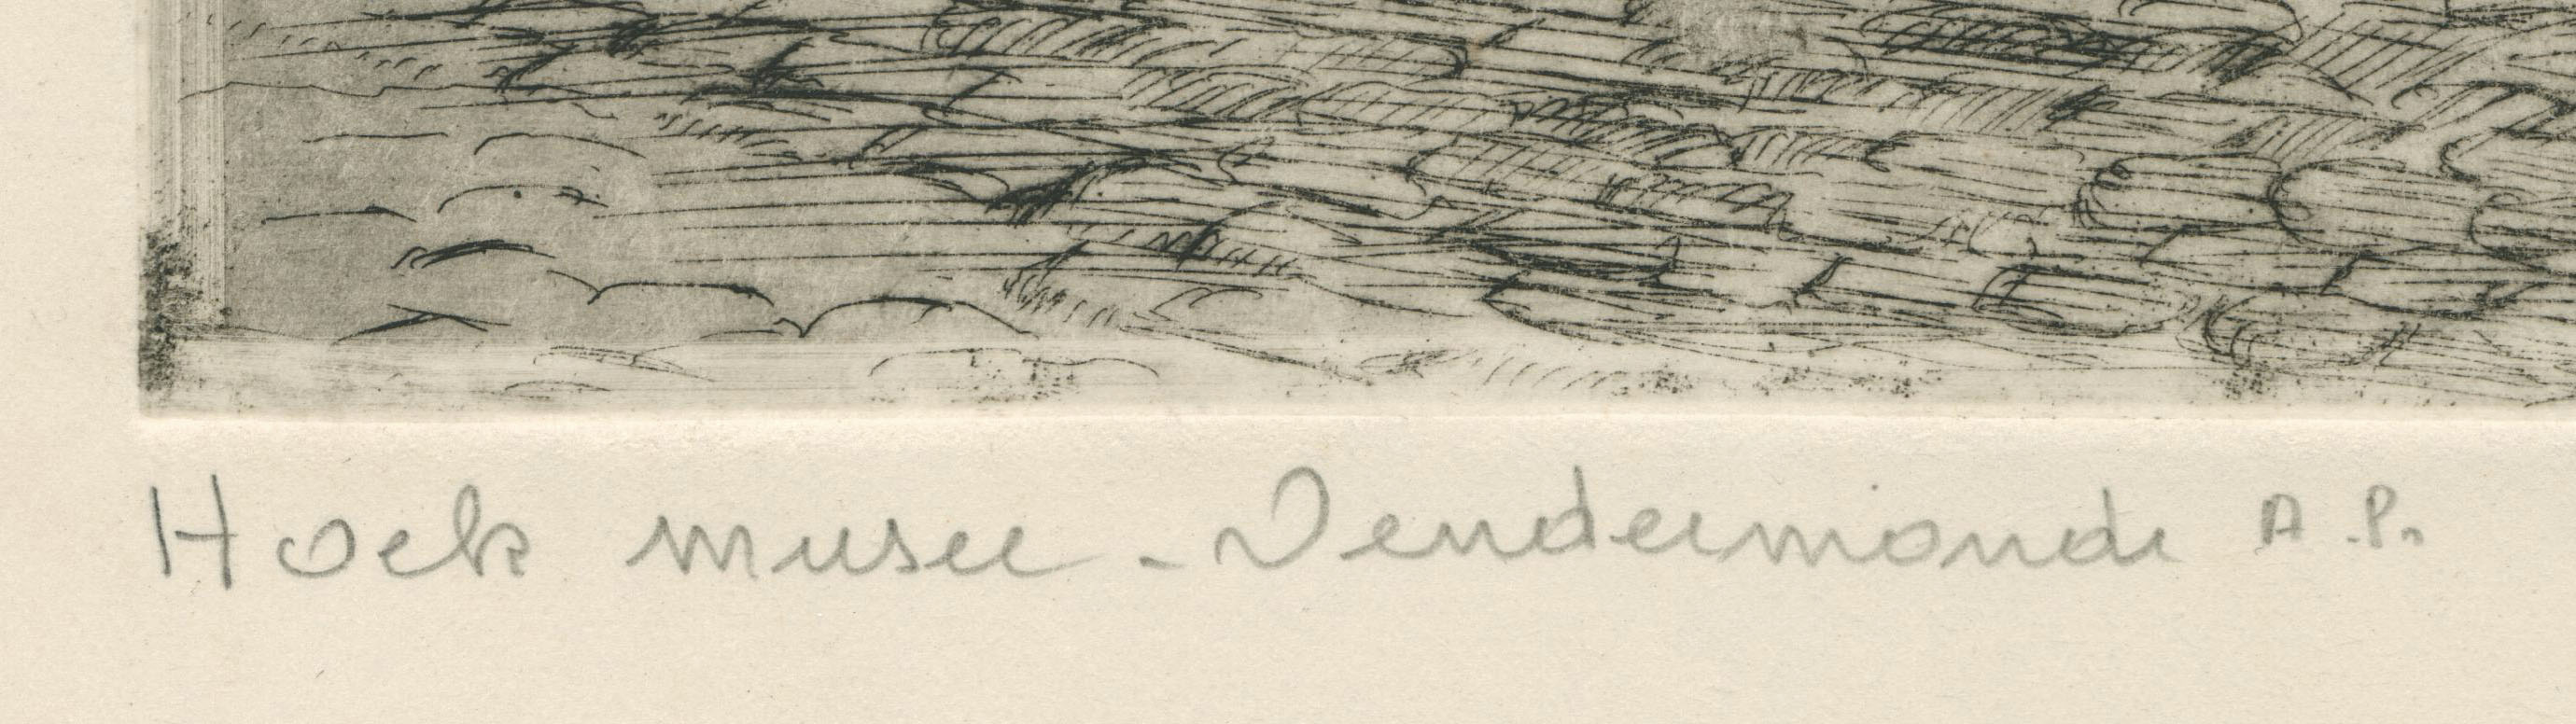 Hoek musee - Dendermonde A.P.